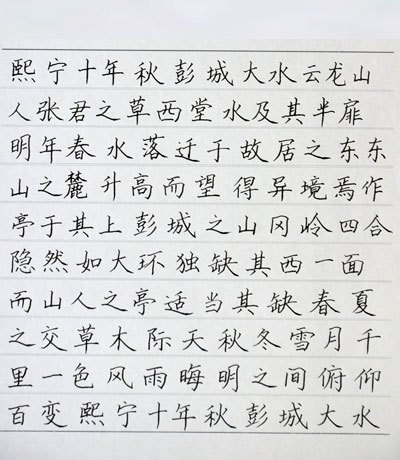 熙宁十年秋彭城大水云龙山
人张君之草西堂水及其半扉
明年春水落迁于故居之东东
山之麓升高而望得异境焉作
亭于其上彭城之山冈岭四合
隐然如大环独缺其西一面
而山人之亭适当其缺春夏
之交草木际天秋冬雪月千
里一色风雨晦明之间俯仰
百变熙宁十年秋彭城大水